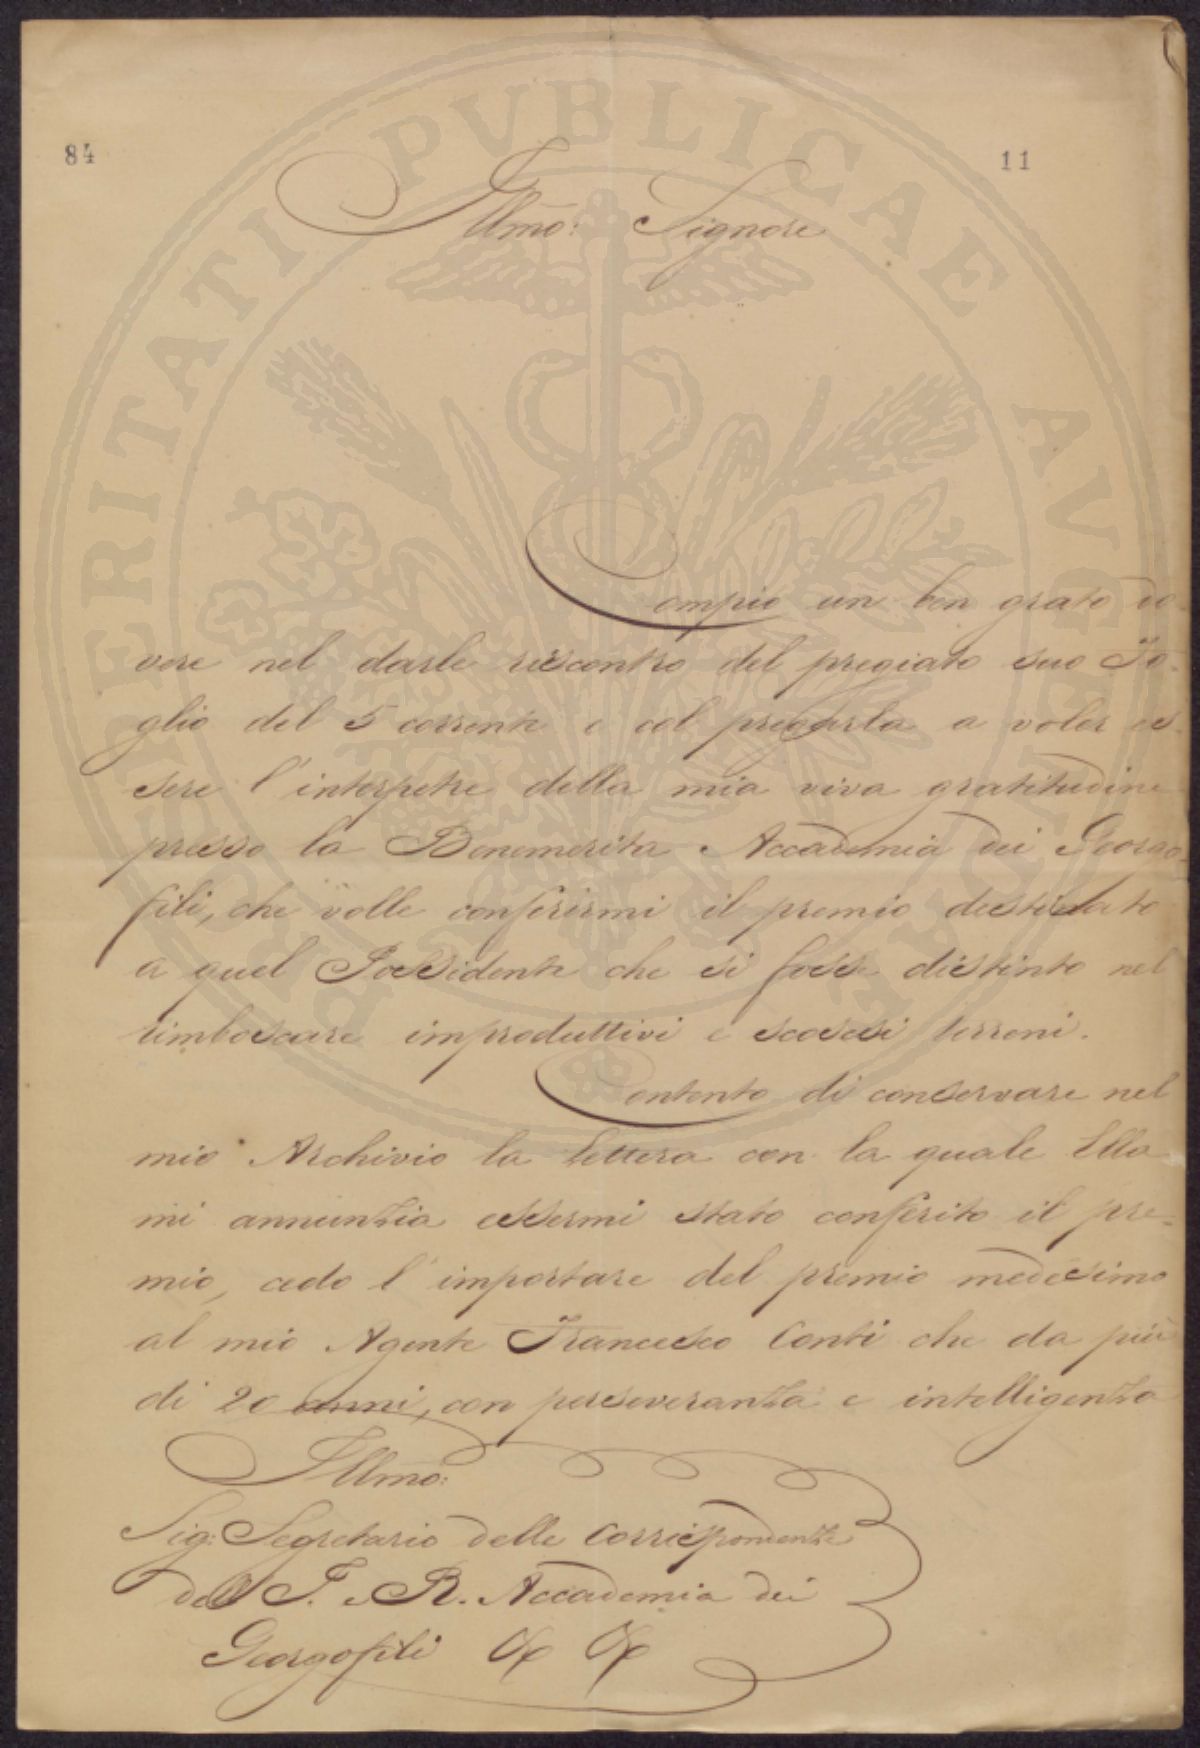 84
11
Illmo: Signore
Compio un ben grato do-
vere nel darle riscontro del pregiato suo Fo-
glio del 5 corrente e col pregarla a voler es-
sere l'interpetre della mia viva gratitudine
presso la Benemerita Accademia dei Georgo-
fili, che volle conferirmi il premio destinato
a quel Possidente che si fosse distinto nel
rimboscare improduttivi e scoscesi terreni.
Contento di conservare nel
mio Archivio la lettera con la quale Ella
mi annunzia essermi stato conferito il pre-
mio, cedo l'importare del premio medesimo
al mio Agente Francesco Conti che da più
di 20 anni, con perseveranza e intelligenza
Illmo:
Sig: Segretario delle Corrispondenze
dell I. e R. Accademia dei
Georgofili
PROSPERITATI PVBLICAE AVGENDAE